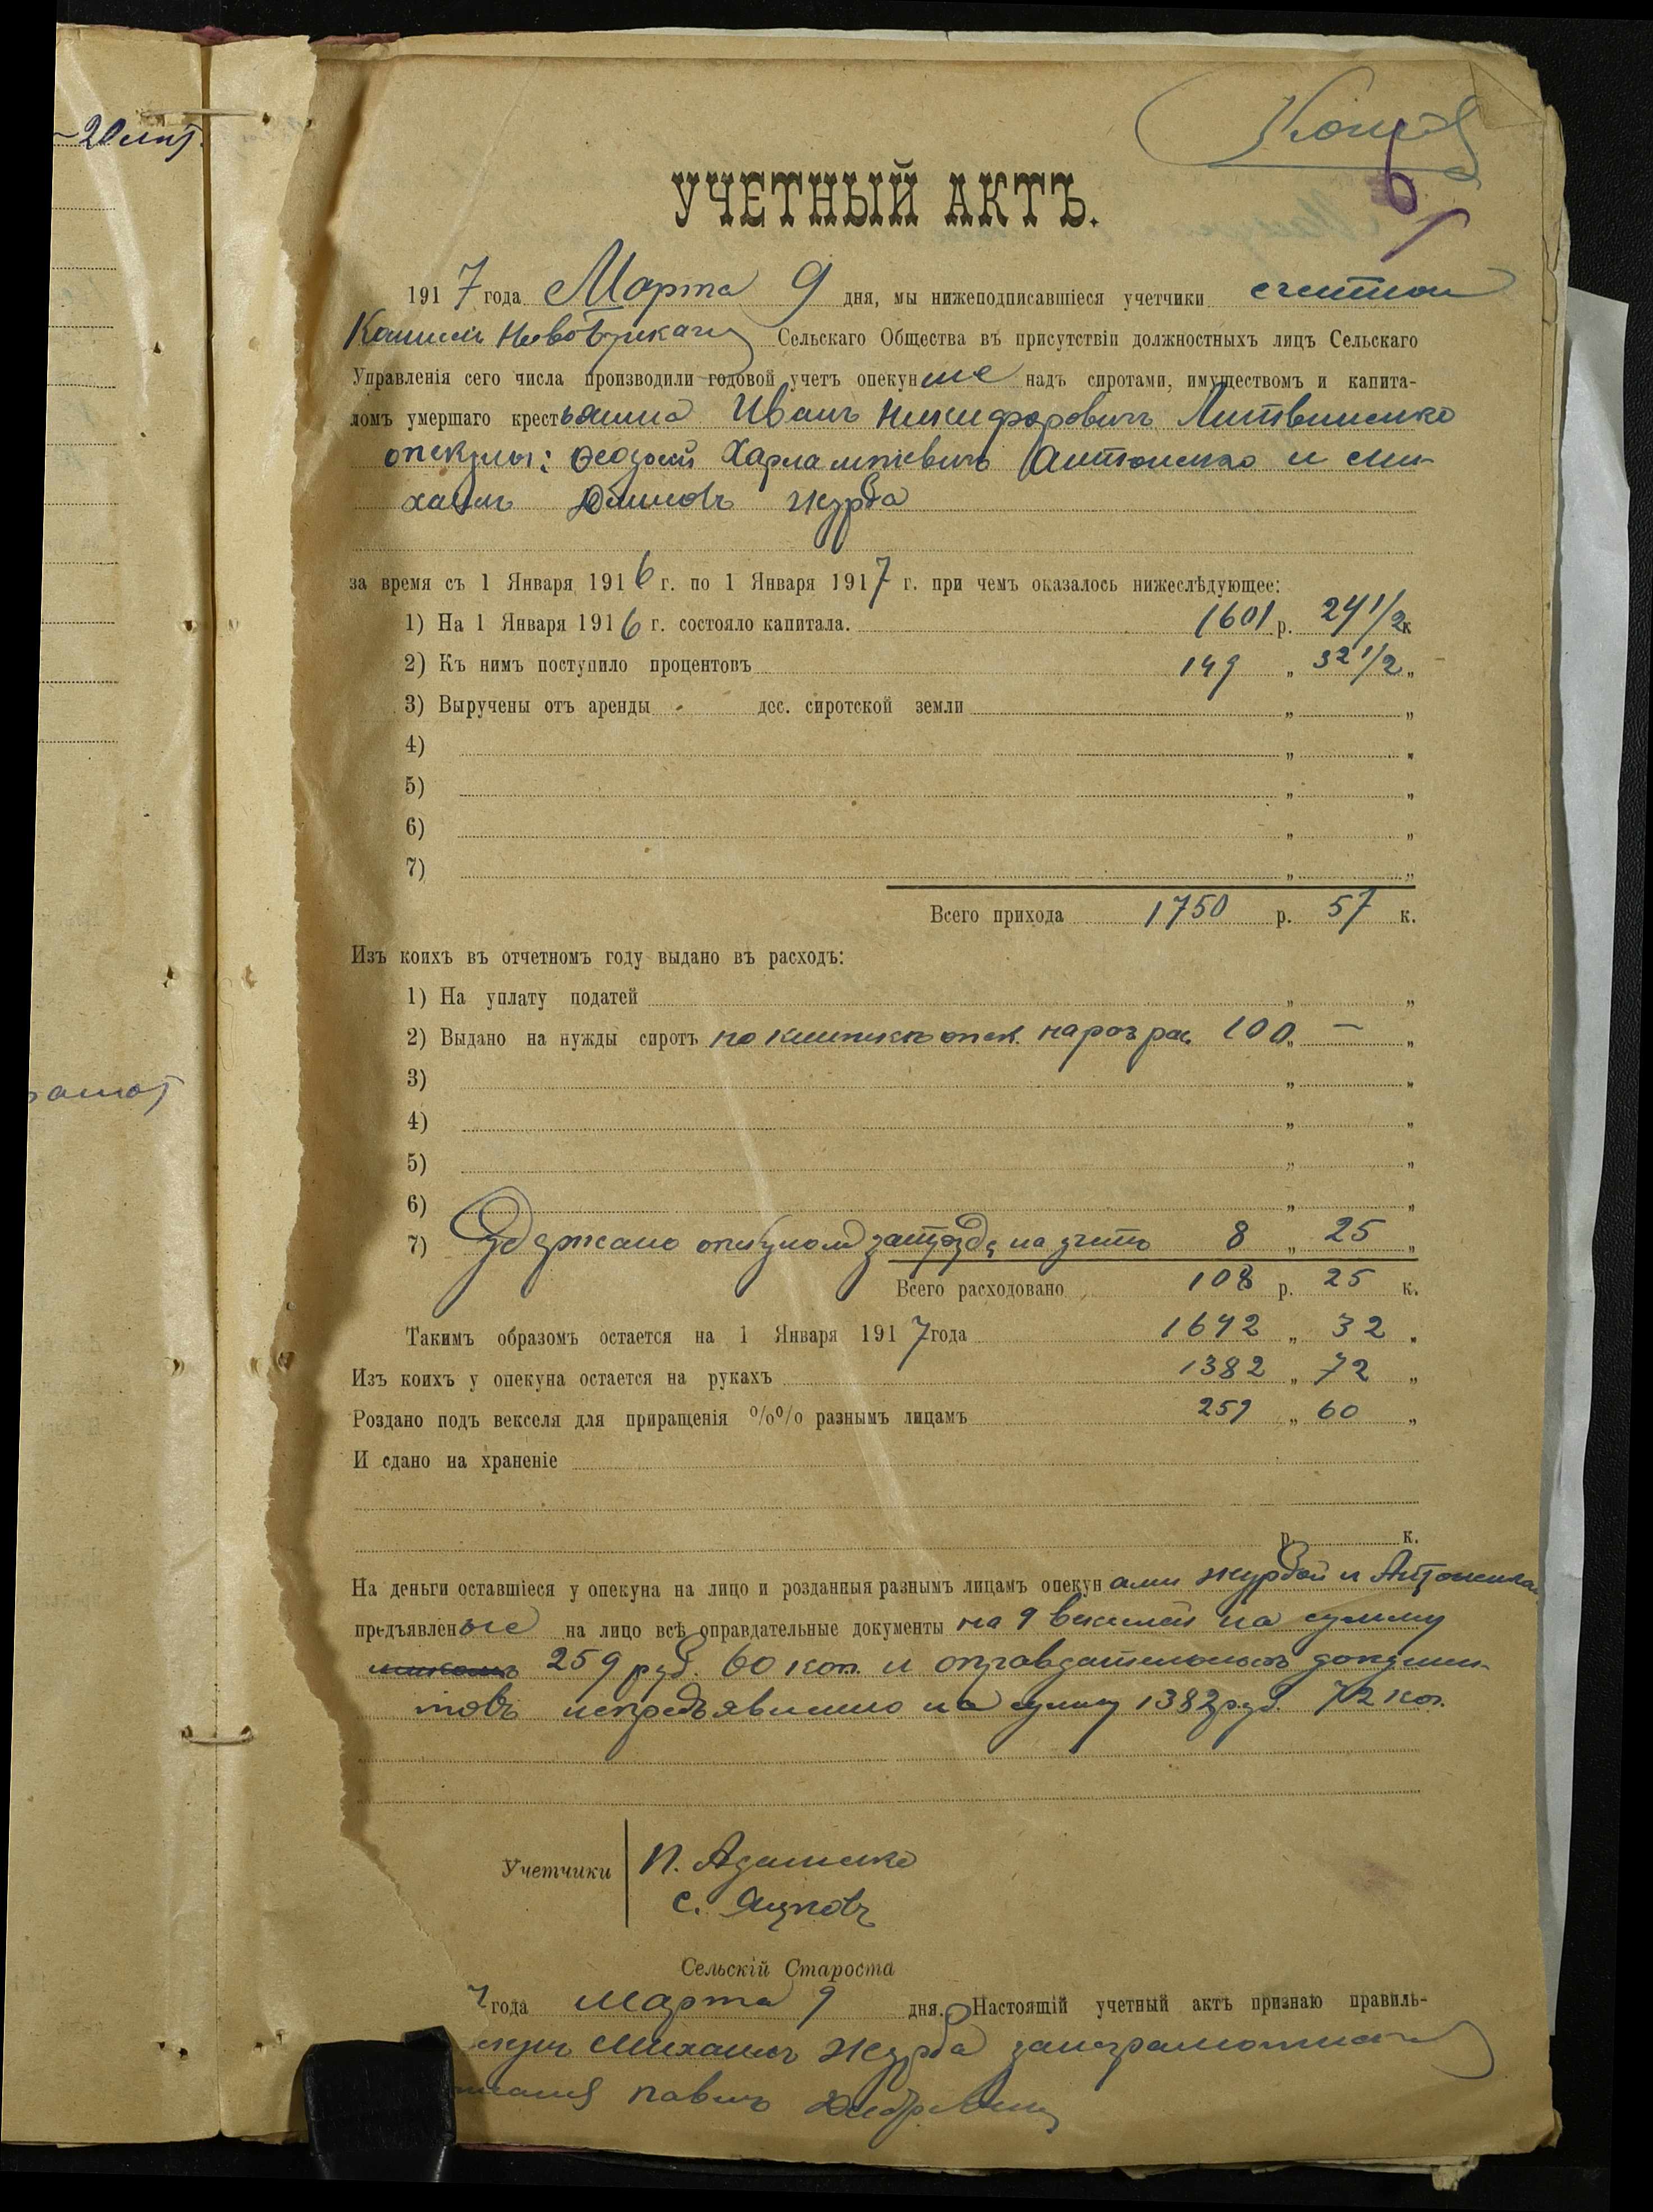 -20 лит.
Копія
6
УЧЕТНЫЙ АКТЪ.
1917 года Марта 9 дня, мы нижеподписавшіеся учетчики счетной
Комисіи Сельскаго Общества въ присутствіи должностныхъ лицъ Сельскаго
Управленія сего числа производили годовой учетъ опекун надъ сиротами, имуществомъ и капита-
ломъ умершаго крестьянина Иванъ Никифоровичъ Литвиненко
опекуны: Феодосій Харлампіевичъ Антоненко и Ми-
хаилъ Журба
за время съ 1 Января 1916 г. по 1 Января 1917 г. при чемъ оказалось нижеслѣдующее:
1) На 1 Января 1916 г. состояло капитала. 1601 р. 24 1/2 к
2) Къ нимъ поступило процентовъ 149 „ 32 1/2 „
3) Выручены отъ аренды - дес. сиротской земли „ „
4) „ „
5) „ „
6) „ „
7) „ „
Всего прихода 1750 р. 57 к.
Изъ коихъ въ отчетномъ году выдано въ расходъ:
1) На уплату податей „ „
2) Выдано на нужды сиротъ по книжкѣ опек. 100 „ — „
3) „ „
4) „ „
5) „ „
6) „ „
7) Удержано опекуномъ на учетъ 8 „ 25 „
Всего расходовано 108 р. 25 к.
Такимъ образомъ остается на 1 Января 1917 года 1642 „ 32 „
Изъ коихъ у опекуна остается на рукахъ 1382 „ 72 „
Роздано подъ векселя для приращенія %% разнымъ лицамъ 259 „ 60 „
И сдано на храненіе
р. к.
На деньги оставшіеся у опекуна на лицо и розданныя разнымъ лицамъ опекунами Журбой и Антоненко
предъявленые на лицо всѣ оправдательные документы на 9 векселей на сумму
259 руб. 60 коп. и оправдательныхъ докумен-
товъ непредъявлено на сумму 1382 руб. 72 коп.
Учетчики П. Адаменко
С. Яцковъ
Сельскій Староста
7 года Марта 9 дня. Настоящій учетный актъ признаю правиль-
Михаилъ Журба
Павелъ